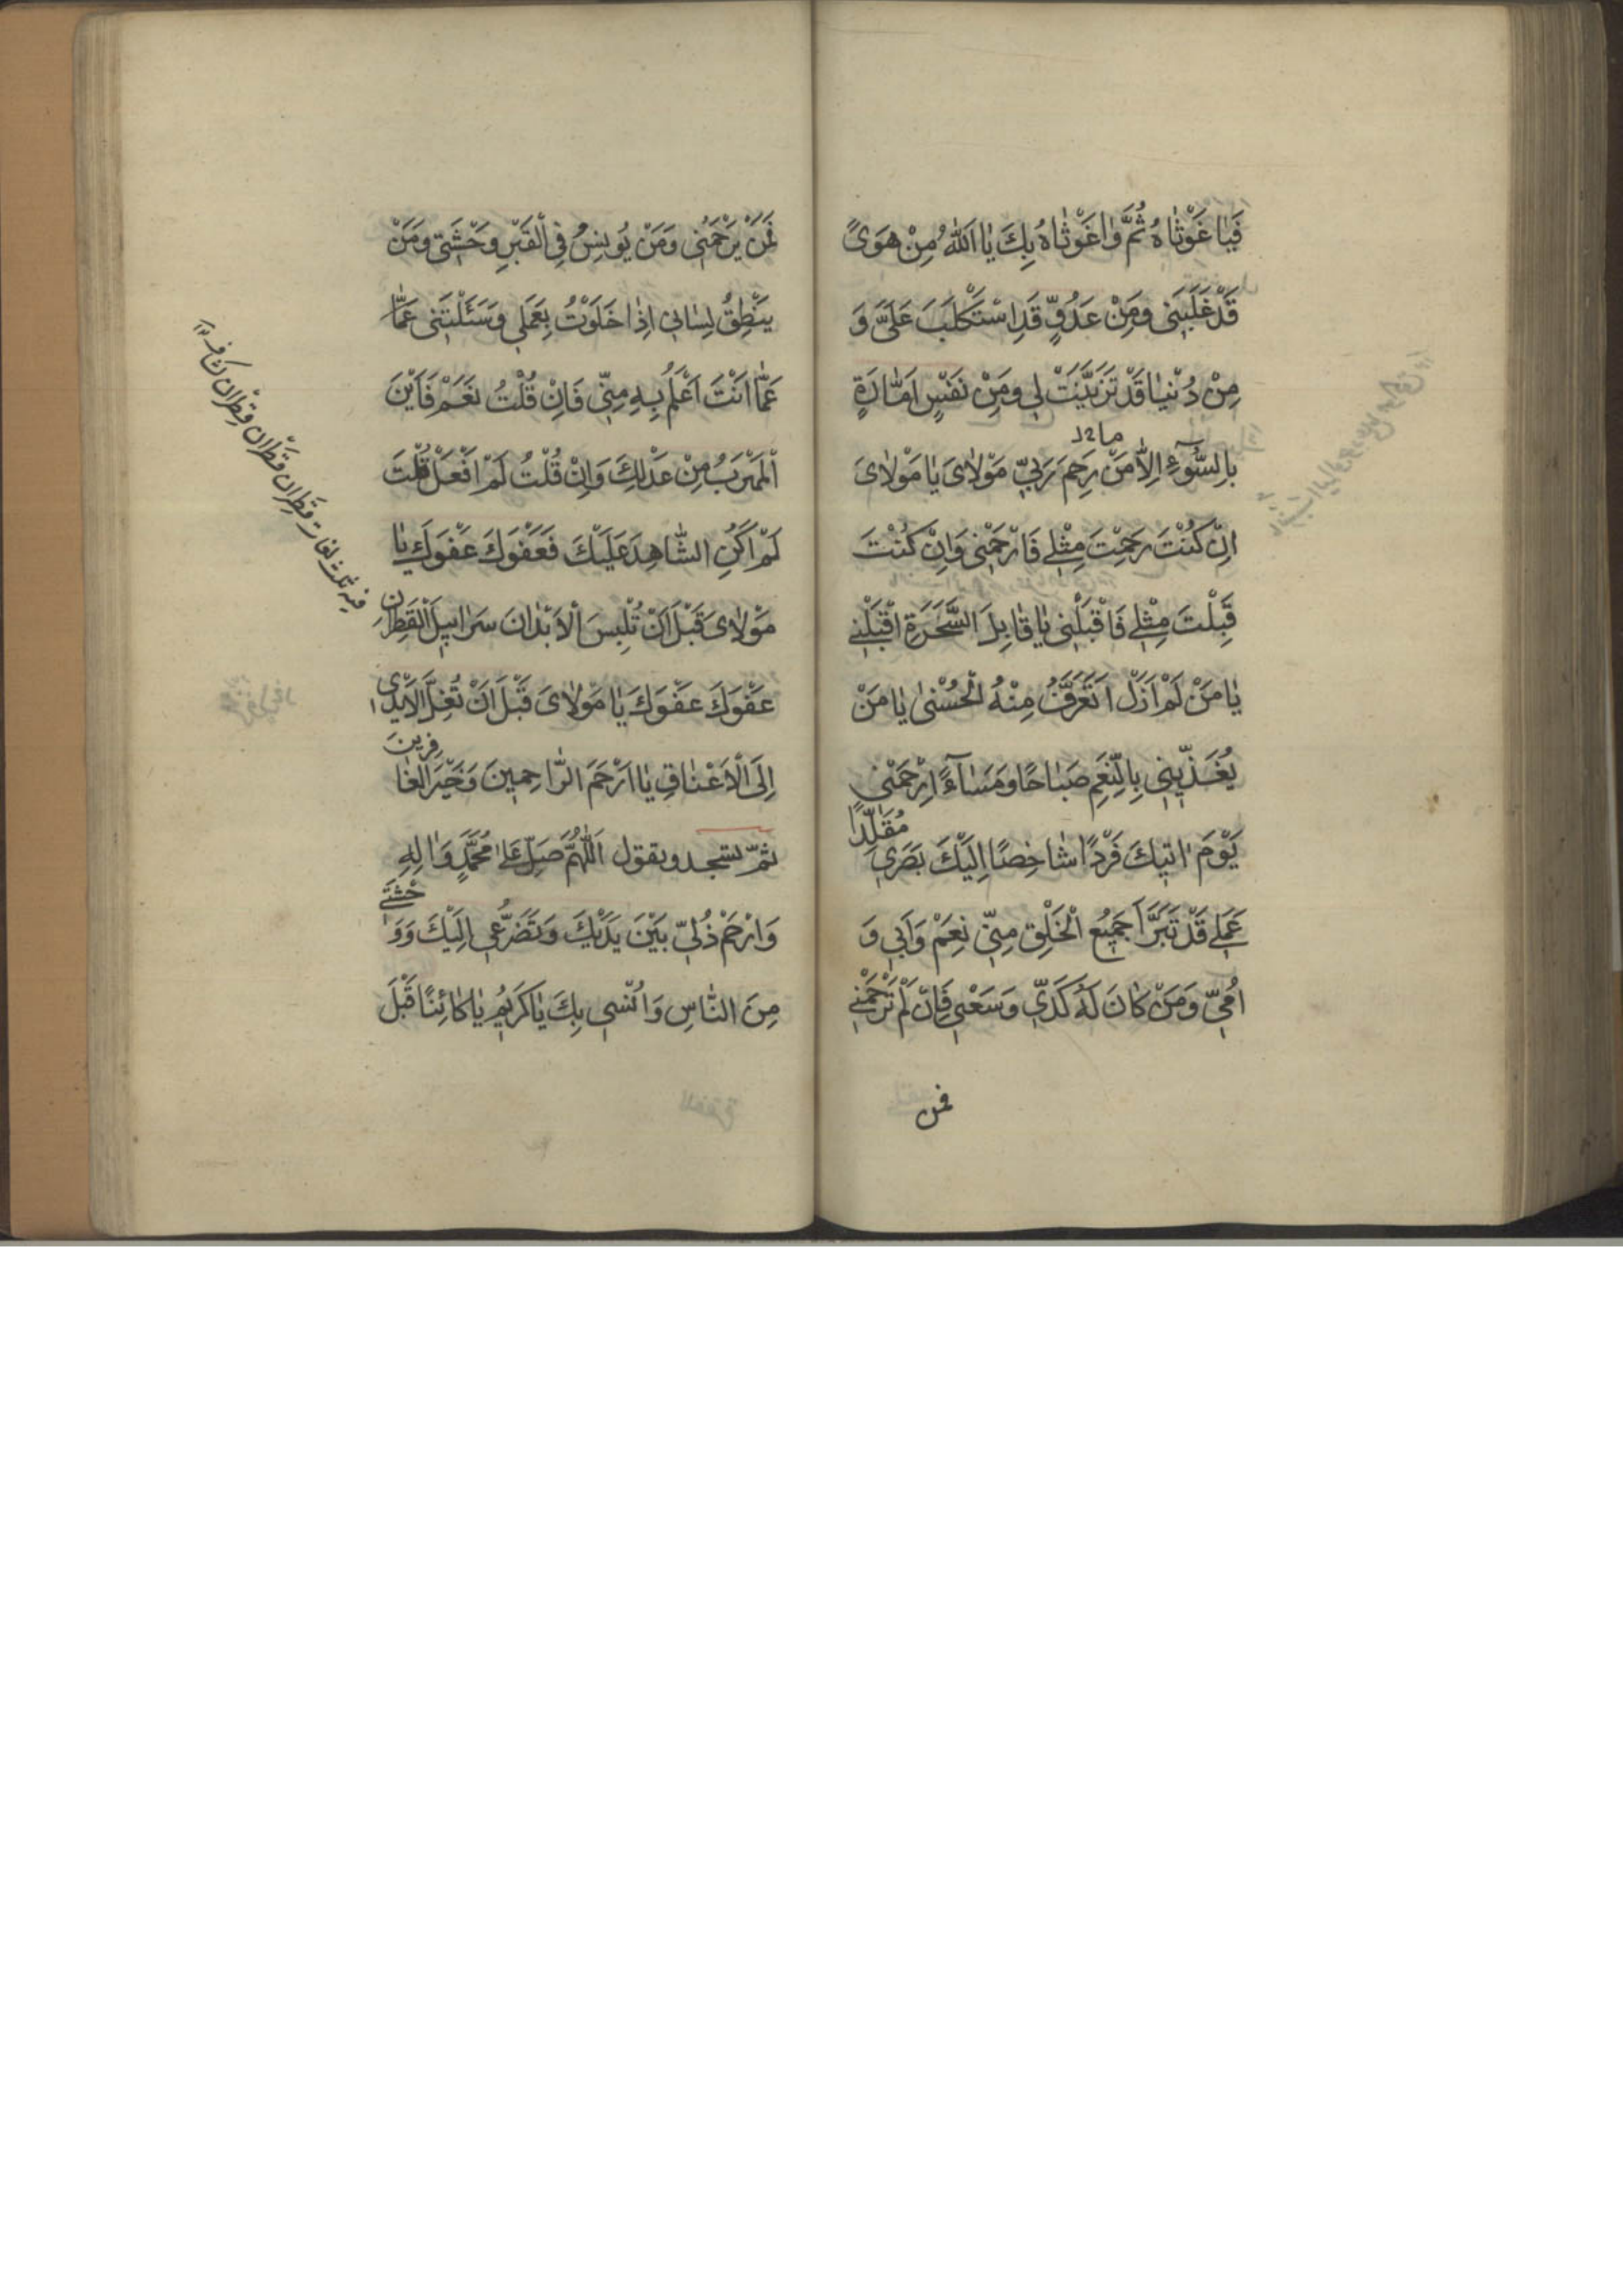 فَيٰا غَوْثٰاهُ ثُمَّ وٰا غَوْثٰاهُ بِكَ يٰا اَللّٰهُ مِنْ هَوًى
قَدْ غَلَبَنِى وَمِنْ عَدُوٍّ قَدِ اسْتَكْلَبَ عَلَىَّ وَ
مِنْ دُنْيٰا قَدْ تَزَيَّنَتْ لِى وَمِنْ نَفْسٍ اَمّٰارَةٍ
بِالسُّوۤءِ اِلاّٰ مَنْ رَحِمَ رَبّٖى مَوْلٰاىَ يٰا مَوْلٰاىَ
اِنْ كُنْتَ رَحِمْتَ مِثْلٖى فَارْحَمْنِى وَاِنْ كُنْتَ
قَبِلْتَ مِثْلٖى فَاقْبَلْنِى يٰا قٰابِلَ السَّحَرَةِ اقْبَلْنِى
يٰا مَنْ لَمْ اَزَلْ اَتَعَرَّفُ مِنْهُ الْحُسْنٰى يٰا مَنْ
يُغَذّٖينِى بِالنِّعَمِ صَبٰاحًا وَمَسٰاۤءً اِرْحَمْنِى
يَوْمَ اٰتٖيكَ فَرْدًا شٰاخِصًا اِلَيْكَ بَصَرٖى مُقَلَّدًا
عَمَلٖى قَدْ تَبَرَّاَ جَمٖيعُ الْخَلْقِ مِنّٖى نَعَمْ وَاَبٖى وَ
اُمّٖى وَمَنْ كٰانَ لَهُ كَدّٖى وَسَعْيٖى فَاِنْ لَمْ تَرْحَمْنِى
فمن
فَمَنْ يَرْحَمُنِى وَمَنْ يُونِسُ فِى الْقَبْرِ وَحْشَتِى وَمَنْ
يَنْطِقُ لِسٰانٖى اِذٰا خَلَوْتُ بِعَمَلٖى وَسَئَلْتَنِى عَمّٰا
عَمّٰا اَنْتَ اَعْلَمُ بِهِ مِنّٖى فَاِنْ قُلْتُ نَعَمْ فَاَيْنَ
الْمَهْرَبُ مِنْ عَدْلِكَ وَاِنْ قُلْتُ لَمْ اَفْعَلْ قُلْتَ
اَلَمْ اَكُنِ الشّٰاهِدَ عَلَيْكَ فَعَفْوَكَ عَفْوَكَ يٰا
مَوْلٰاىَ قَبْلَ اَنْ تُلْبِسَ الْاَبْدٰانَ سَرٰابٖيلَ الْقَطِرٰانِ
عَفْوَكَ عَفْوَكَ يٰا مَوْلٰاىَ قَبْلَ اَنْ تُغَلَّ الْاَيْدٖى
اِلَى الْاَعْنٰاقِ يٰا اَرْحَمَ الرّٰاحِمٖينَ وَخَيْرَ الْغٰافِرٖينَ
ثمّ تسجد وتقول اَللّٰهُمَّ صَلِّ عَلٰى مُحَمَّدٍ وَاٰلِهِ
وَارْحَمْ ذُلّٖى بَيْنَ يَدَيْكَ وَتَضَرُّعٖى اِلَيْكَ وَوَحْشَتٖى
مِنَ النّٰاسِ وَاُنْسٖى بِكَ يٰا كَرٖيمُ يٰا كٰائِنًا قَبْلَ
فيه ثلث لغات قَطِران قَطْران قِطْران